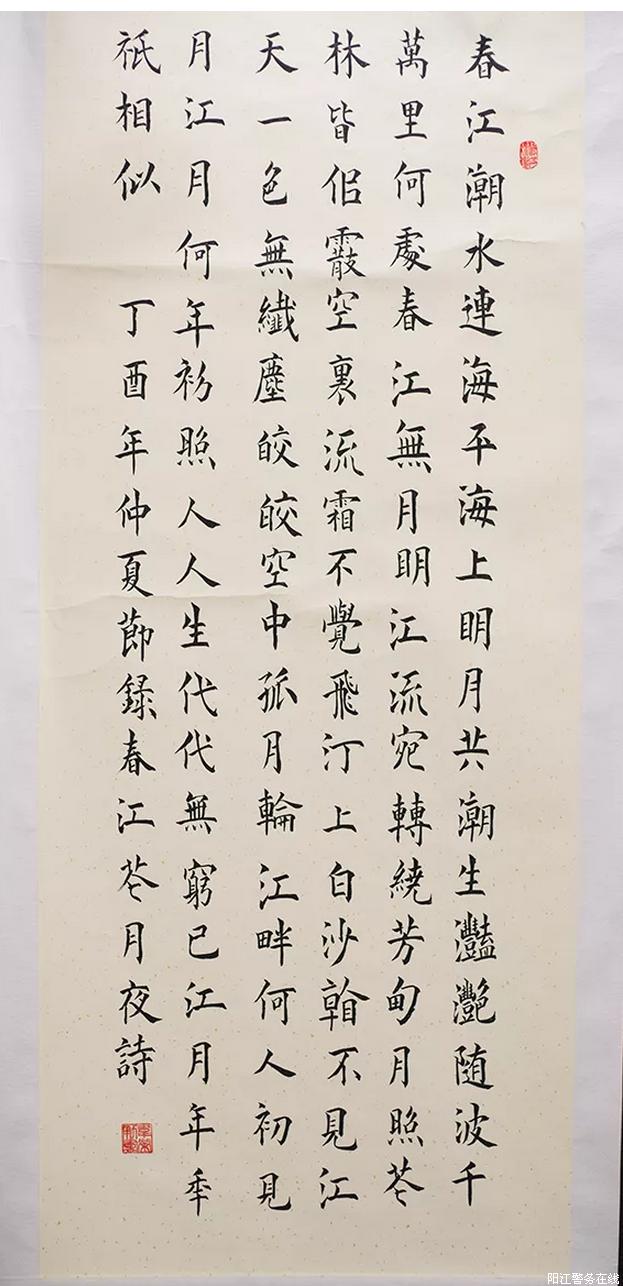 春江潮水連海平海上眀月共潮生灩灧随波千
萬里何處春江無月眀江流宛轉繞芳甸月照芲
林皆侣霰空裏流霜不覺飛汀上白沙看不見江
天一色無纖塵皎皎空中孤月輪江畔何人初見
月江月何年初照人人生代代無窮已江月年秊
祇相似 丁酉年仲夏節録春江芲月夜詩
阳江警务在线